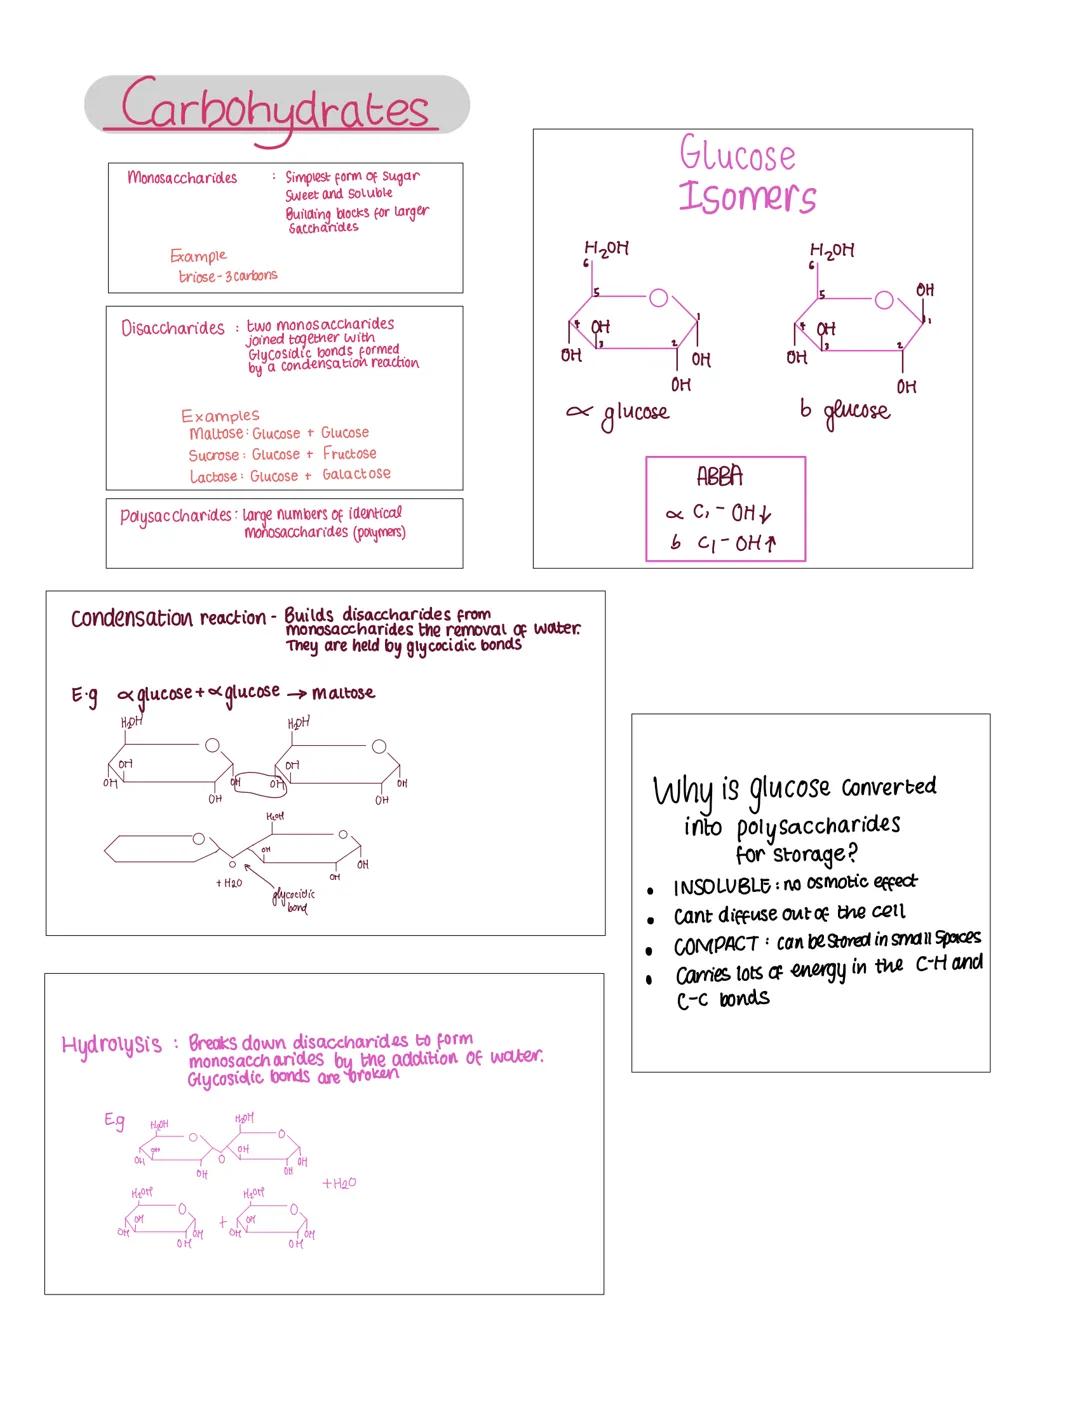 Carbohydrates
Monosaccharides : Simplest form of Sugar
Sweet and Soluble
Building blocks for larger
Saccharides
Example
triose - 3 carbons
Disaccharides : two monosaccharides
joined together with
Glycosidic bonds formed
by a condensation reaction
Examples
Maltose: Glucose + Glucose
Sucrose: Glucose + Fructose
Lactose: Glucose + Galactose
Polysaccharides: large numbers of identical
monosaccharides (polymers)
Glucose
Isomers
H₂OH
6
5
4 OH
3
2
1
OH
OH
OH
α glucose
H₂OH
6
5
OH
4 OH
3
2
1
OH
OH
b glucose
ABBA
α C₁ - OH↓
b C₁ - OH↑
Condensation reaction - Builds disaccharides from
monosaccharides the removal of water.
They are held by glycocidic bonds
E.g α glucose + α glucose → maltose
H₂OH H₂OH
OH OH
OH OH OH OH
OH OH
H₂OH
OH
O OH
+ H20 OH
glycocidic
bond
Why is glucose converted
into polysaccharides
for storage?
• INSOLUBLE : no osmotic effect
• Cant diffuse out of the cell
• COMPACT : can be Stored in small Spaces
• Carries lots of energy in the C-H and
C-C bonds
Hydrolysis : Breaks down disaccharides to form
monosaccharides by the addition of water.
Glycosidic bonds are broken
E.g
H₂OH H₂OH
O O
OH OH
OH O OH
OH OH
+ H20
H₂OH H₂OH
O O
OH + OH
OH OH OH OH
OH OH